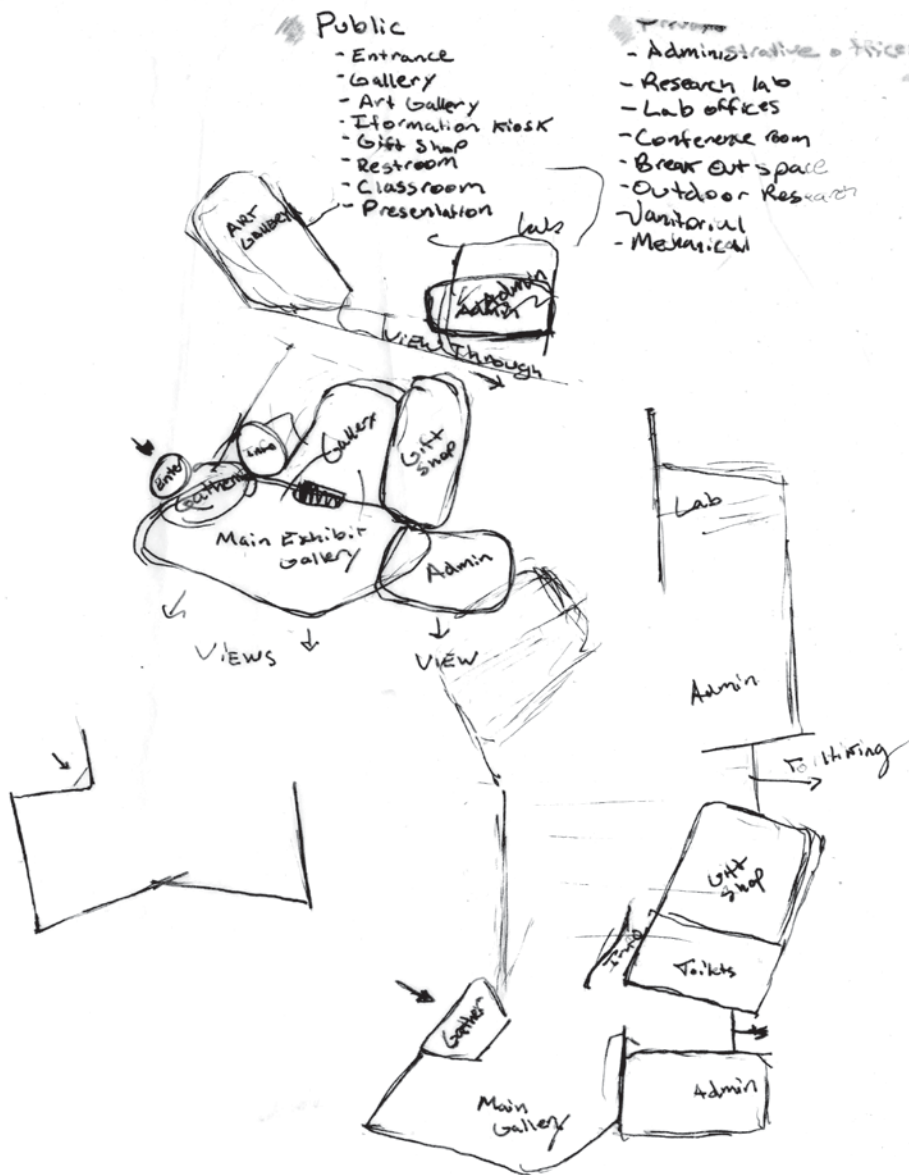 Public
- Entrance
- Gallery
- Art Gallery
- Iformation Kiosk
- Gift Shop
- Restroom
- Classroom
- Presentation
- Administrative office
- Research lab
- Lab offices
- Conference room
- Break Out space
- Outdoor Research
- Janitorial
- Mechanical
ART Gallery
Lab
Admin
Admin
VIEW Through
Enter
Gather
Info
Gallery
Gift Shop
Main Exhibit Gallery
Admin
VIEWS
VIEW
Lab
Admin
Gift Shop
Info
Toilets
Gather
Main Gallery
Admin